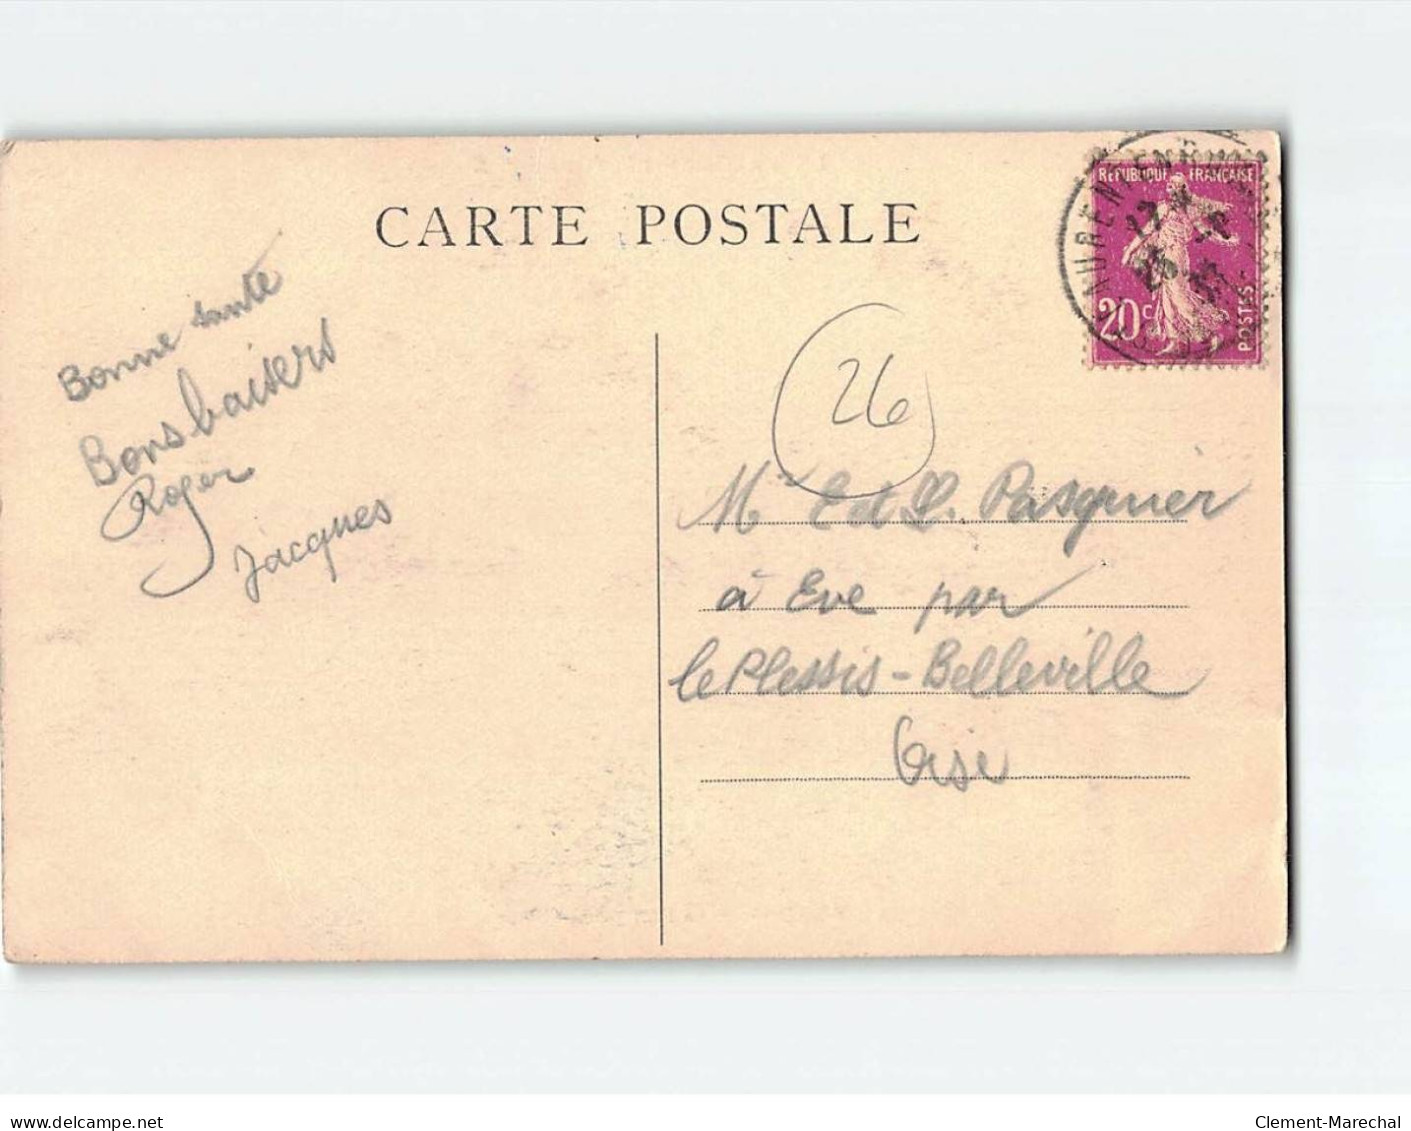 CARTE POSTALE
REPUBLIQUE FRANÇAISE
20 c
POSTES
Bonne santé
Bons baisers
Roger
Jacques
26
M Pasquier
à Eve par
le Plessis-Belleville
Oise
www.delcampe.net
Clement-Marechal